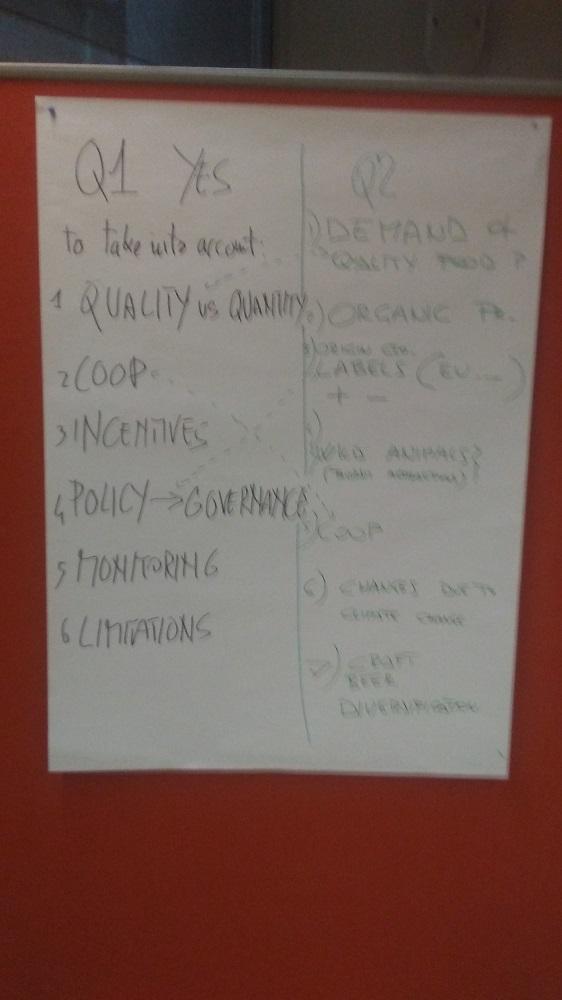 Q1 YES
to take into account:
1 QUALITY vs QUANTITY
2 COOP
3 INCENTIVES
4 POLICY → GOVERNANCE
5 MONITORING
6 LIMITATIONS
Q2
1) DEMAND of
QUALITY FOOD ?
2) ORGANIC
3)
LABELS (EU ...)
+ -
4)
WILD ANIMALS?
5) COOP
6) CHANGES DUE TO
CLIMATE CHANGE
7) CRAFT
BEER